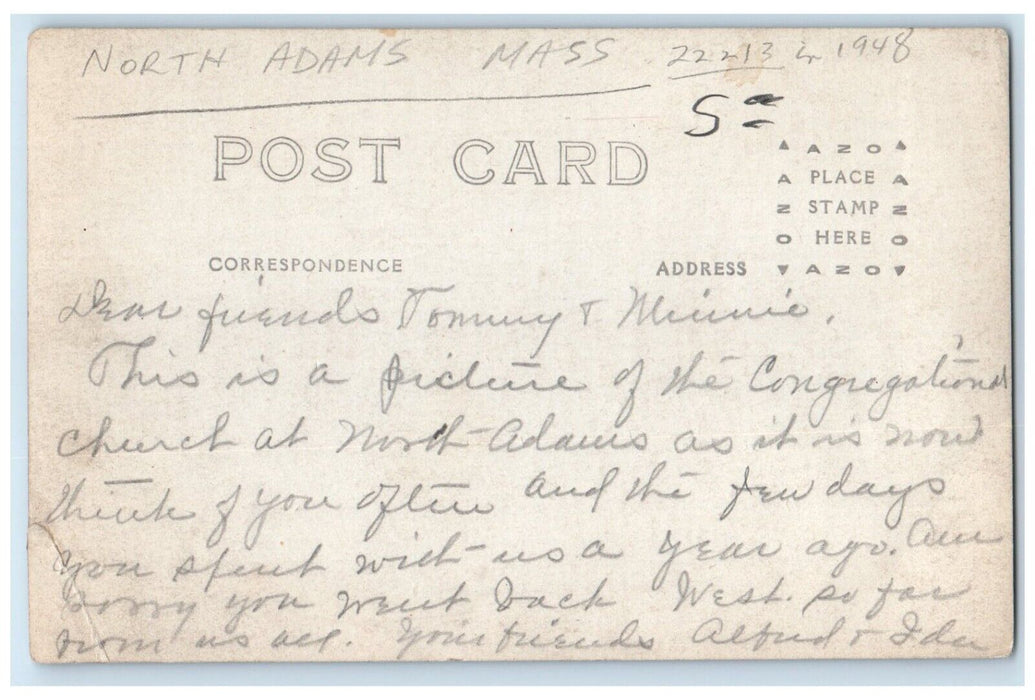 NORTH ADAMS MASS 22213 1948
5
POST CARD
▲ A Z O ▲
A PLACE A
Z STAMP Z
O HERE O
▼ A Z O ▼
CORRESPONDENCE
ADDRESS
Dear friends Tommy & Minnie,
This is a picture of the Congregational
church at North Adams as it is now
think of you often and the few days
you spent with us a year ago. Am
sorry you went back West. so far
from us all. Your friends Alfred & Ida